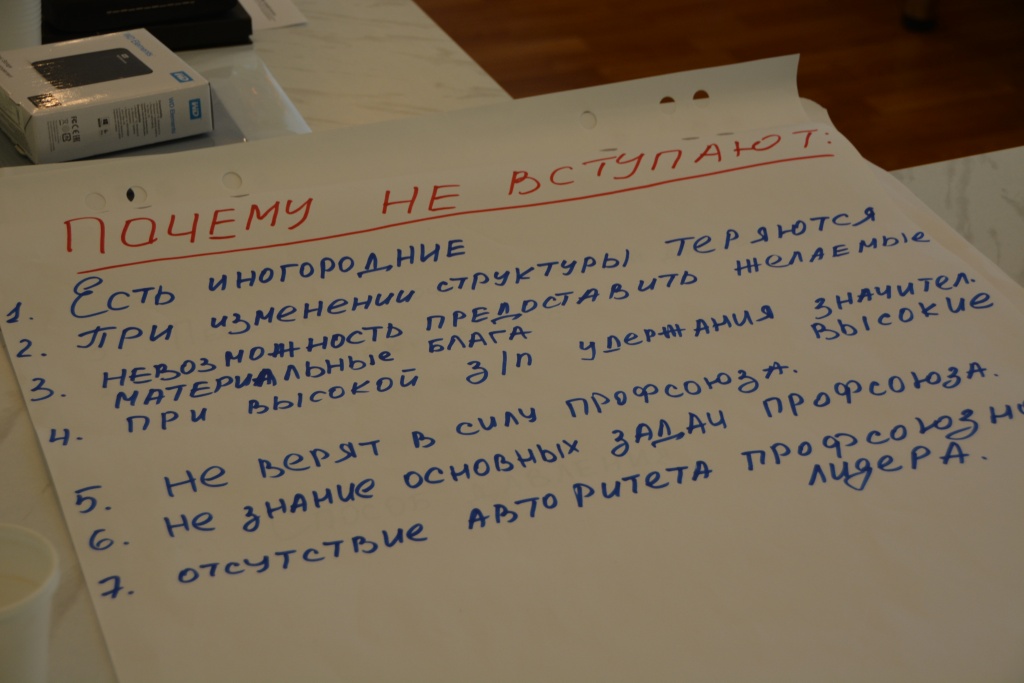 WD Elements
WD
ПОЧЕМУ НЕ ВСТУПАЮТ:
1. Есть иногородние
2. При изменении структуры теряются
3. Невозможность предоставить желаемые
материальные блага
4. при высокой з/п удержания значител.
высокие
5. не верят в силу профсоюза.
6. не знание основных задач профсоюза.
7. отсутствие авторитета
лидера.